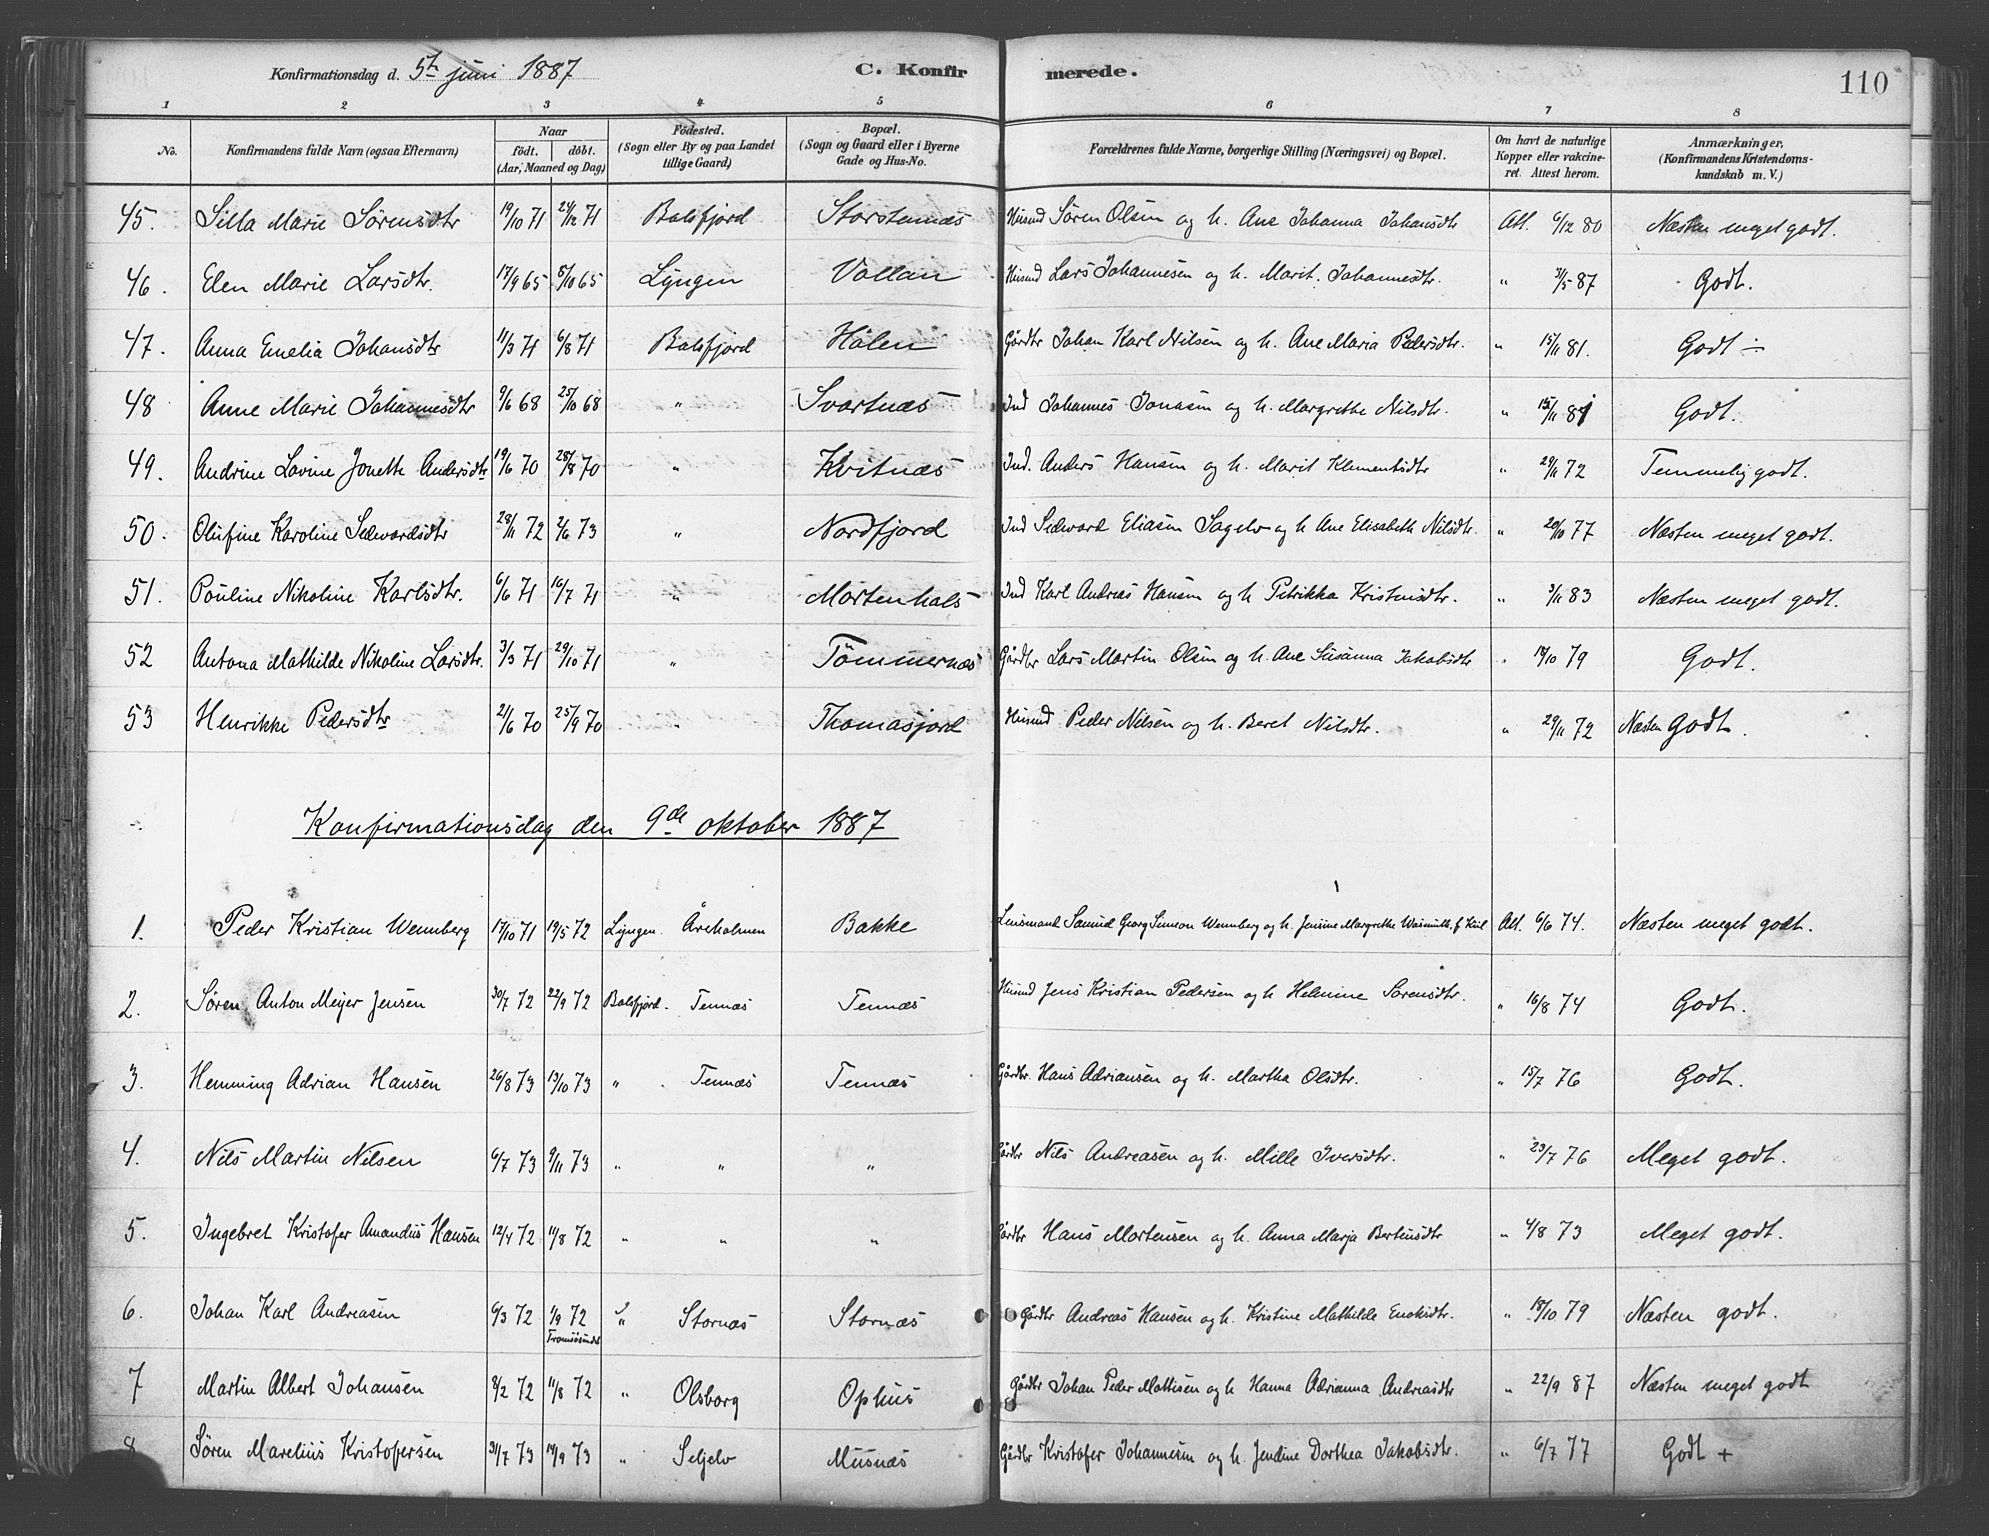 Konfirmationsdag d. 5te juni 1887 C. Konfirmerede. 110
1 2 3 4 5 6 7 8
No. Konfirmandens fulde Navn (ogsaa Efternavn) Naar født. døbt. (Aar, Maaned og Dag) Fødested. (Sogn eller By og paa Landet tillige Gaard) Bopæl. (Sogn og Gaard eller i Byerne Gade og Hus-No. Forældrenes fulde Navne, borgerlige Stilling (Næringsvei) og Bopæl. Om havt de naturlige Kopper eller vakcineret. Attest herom. Anmærkninger, (Konfirmandens Kristendomskundskab m. V.)
45. Silla Marie Sørensdtr 19/10 71 24/12 71 Balsfjord Storstennæs Husmd Søren Olsen og h. Ane Johanna Johansdtr Att. 6/12 80 Næsten meget godt.
46. Elen Marie Larsdtr. 17/9 65 8/10 65 Lyngen Vollan Husmd Lars Johannesen og h. Marit Johannesdtr. " 31/5 87 Godt.
47. Anna Emelia Johansdtr 11/3 71 6/8 71 Balsfjord Holen Gårdbr Johan Karl Nilsen og h. Ane Maria Pedersdtr. " 15/11 81. Godt ÷
48 Anne Marie Johannesdtr 9/6 68 25/10 68 " Svartnæs Ind Johannes Jonasen og h. Margrethe Nilsdtr. " 15/11 81 Godt.
49. Andrine Lovine Jonette Andersdtr 19/6 70 28/8 70 " Kvitnæs Ind. Anders Hansen og h. Marit Klementsdtr " 29/11 72 Temmelig godt.
50. Olufine Karoline Sedvardsdtr 28/11 72 2/6 73 " Nordfjord Ind Sedvard Eliasen Sagelv og h Ane Elisabeth Nilsdtr. " 20/10 77 Næsten meget godt.
51. Pouline Nikoline Karlsdtr. 6/6 71 16/7 71 " Mortenhals Ind Karl Andreas Hansen og h Petrikka Kristensdtr. " 3/11 83 Næsten meget godt.
52 Antona Mathilde Nikoline Larsdtr. 3/3 71 29/10 71 " Tømmernæs Gårdbr Lars Martin Olsen og h. Ane Susanna Jakobsdtr " 14/10 79 Godt.
53 Henrikke Pedersdtr 21/6 70 25/9 70 " Thomasjord Husmd Peder Nilsen og h. Beret Nilsdtr. " 29/11 72 Næsten Godt.
Konfirmationsdag den 9de oktober 1887
1. Peder Kristian Wennberg 17/10 71 19/5 72 Lyngen. Åreholmen Bakke Lensmand Samuel Georg Simeon Wennberg og h. Jensine Margrethe Att. 6/6 74. Næsten meget godt.
2. Søren Anton Meyer Jensen 30/7 72 22/9 72 Balsfjord. Tennæs Tennæs Husmd Jens Kristian Pedersen og h Helmine Sørensdtr. " 16/8 74 Godt.
3. Hemming Adrian Hansen 26/8 73 19/10 73 " Tennæs Tennæs Gårdbr. Hans Adriansen og h. Martha Olsdtr. " 15/7 76 Godt.
4. Nils Martin Nilsen 6/7 73 9/11 73 " " " Gårdbr Nils Andreasen og h. Mille Iversdtr. " 23/7 76 Meget godt.
5. Ingebret Kristofer Amandus Hansen 12/4 72 11/8 72 " " " Gårdbr Hans Mortensen og h. Anna Marja Bertensdtr " 4/8 73 Meget godt.
6. Johan Karl Andreasen 6/3 72 1/9 72 Tromsøsundet " Stornæs Stornæs Gårdbr Andreas Hansen og h. Kristine Mathilde Enoksdtr. " 18/10 79 Næsten godt.
7 Martin Albert Johansen 8/2 72 11/8 72 " Olsborg Ophus Gårdbr Johan Peder Mattisen og h Hanna Adrianna Andreasdtr " 22/9 87 Næsten meget godt
8 Søren Marelius Kristofersen 31/7 73 14/9 73 " Seljelv Musnæs Gårdbr Kristofer Johannesen og h. Jendine Dorthea Jakobsdtr. " 6/7 77 Godt +